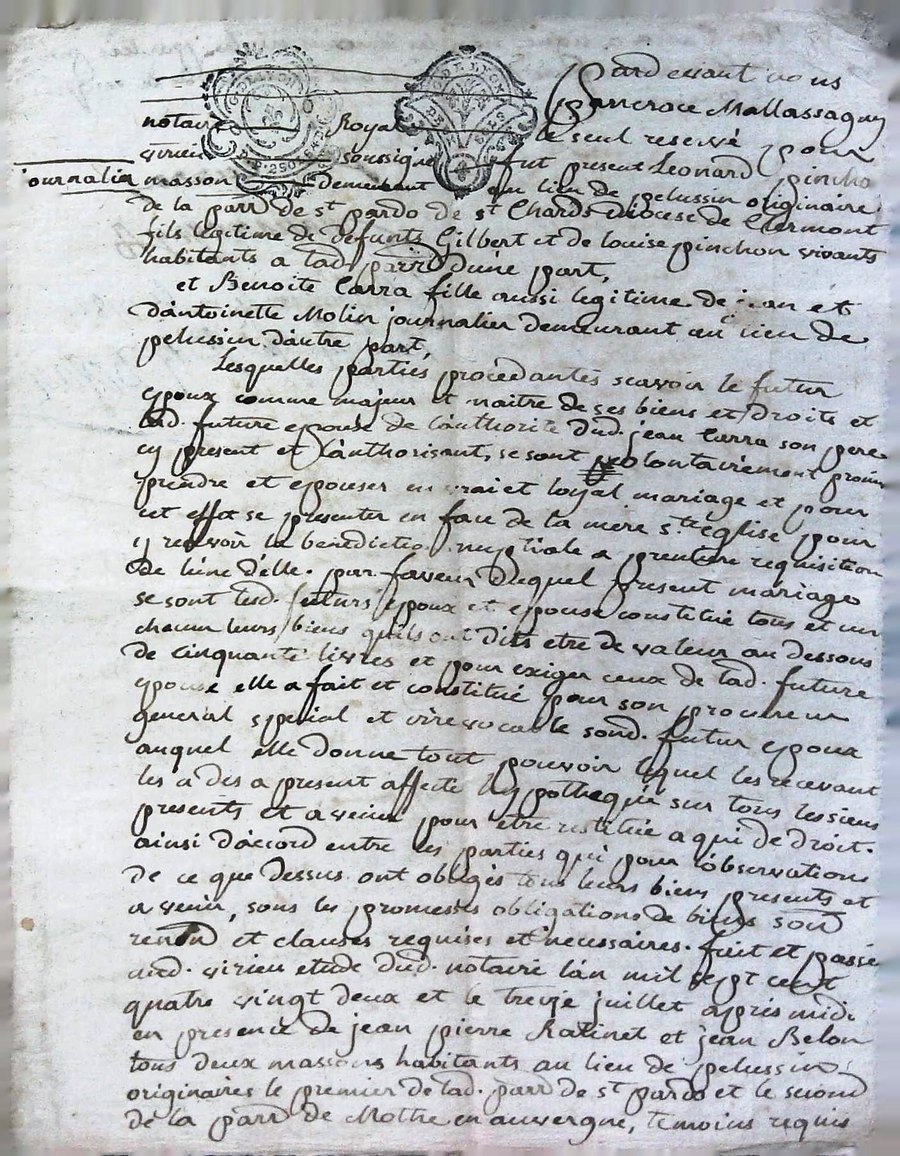 Pardevant nous
Pancrace Mallassagny
notaire Royal le seul reservé pour
virieu soussigné fut present Leonard pincho
journalier masson demeurant au lieu de pelussin originaire
de la parr. de st pardo de st Chards diocese de Clermont
fils legitime de defunts Gilbert et de louise pinchon vivants
habitants a lad. parr. d'une part,
et Benoite Carra fille aussi legitime de jean et
d'antoinette Molin journalier demeurant au lieu de
pelussin d'autre part,
Lesquelles parties procedantes scavoir le futur
epoux comme majeur et maitre de ses biens et droits et
lad. future epouse de l'authorité dud. jean Carra son pere
cy present et l'authorisant, se sont volontairement promis
prendre et epouser en vrai et loyal mariage et pour
cet effet se presenter en face de la mere ste église pour
y recevoir la benediction nuptiale a premiere requisition
de l'une d'elle. par faveur duquel present mariage
se sont lesd. futurs epoux et epouse constitué tous et un
chacun leurs biens qu'ils ont dits etre de valeur au dessous
de cinquante livres et pour exiger ceux de lad. future
epouse elle a fait et constitué pour son procureur
general special et irrevocable sond. futur epoux
auquel elle donne tout pouvoir lequel les recevant
les a des a present affecté hypothequé sur tous les siens
presents et a venir pour etre restitué a qui de droit.
ainsi d'accord entre les parties qui pour l'observations
de ce que dessus ont obligés tous leurs biens presents et
a venir, sous les promesses obligations de biens soud
renon et clauses requises et necessaires. fait et passé
aud. virieu etude dud. notaire l'an mil sept cent
quatre vingt deux et le treize juillet après midi
en presence de jean pierre Ratinet et jean Belon
tous deux massons habitants au lieu de pelussin
originaires le premier de lad. parr. de st pardo et le second
de la parr. de Mothe en auvergne, temoins requis